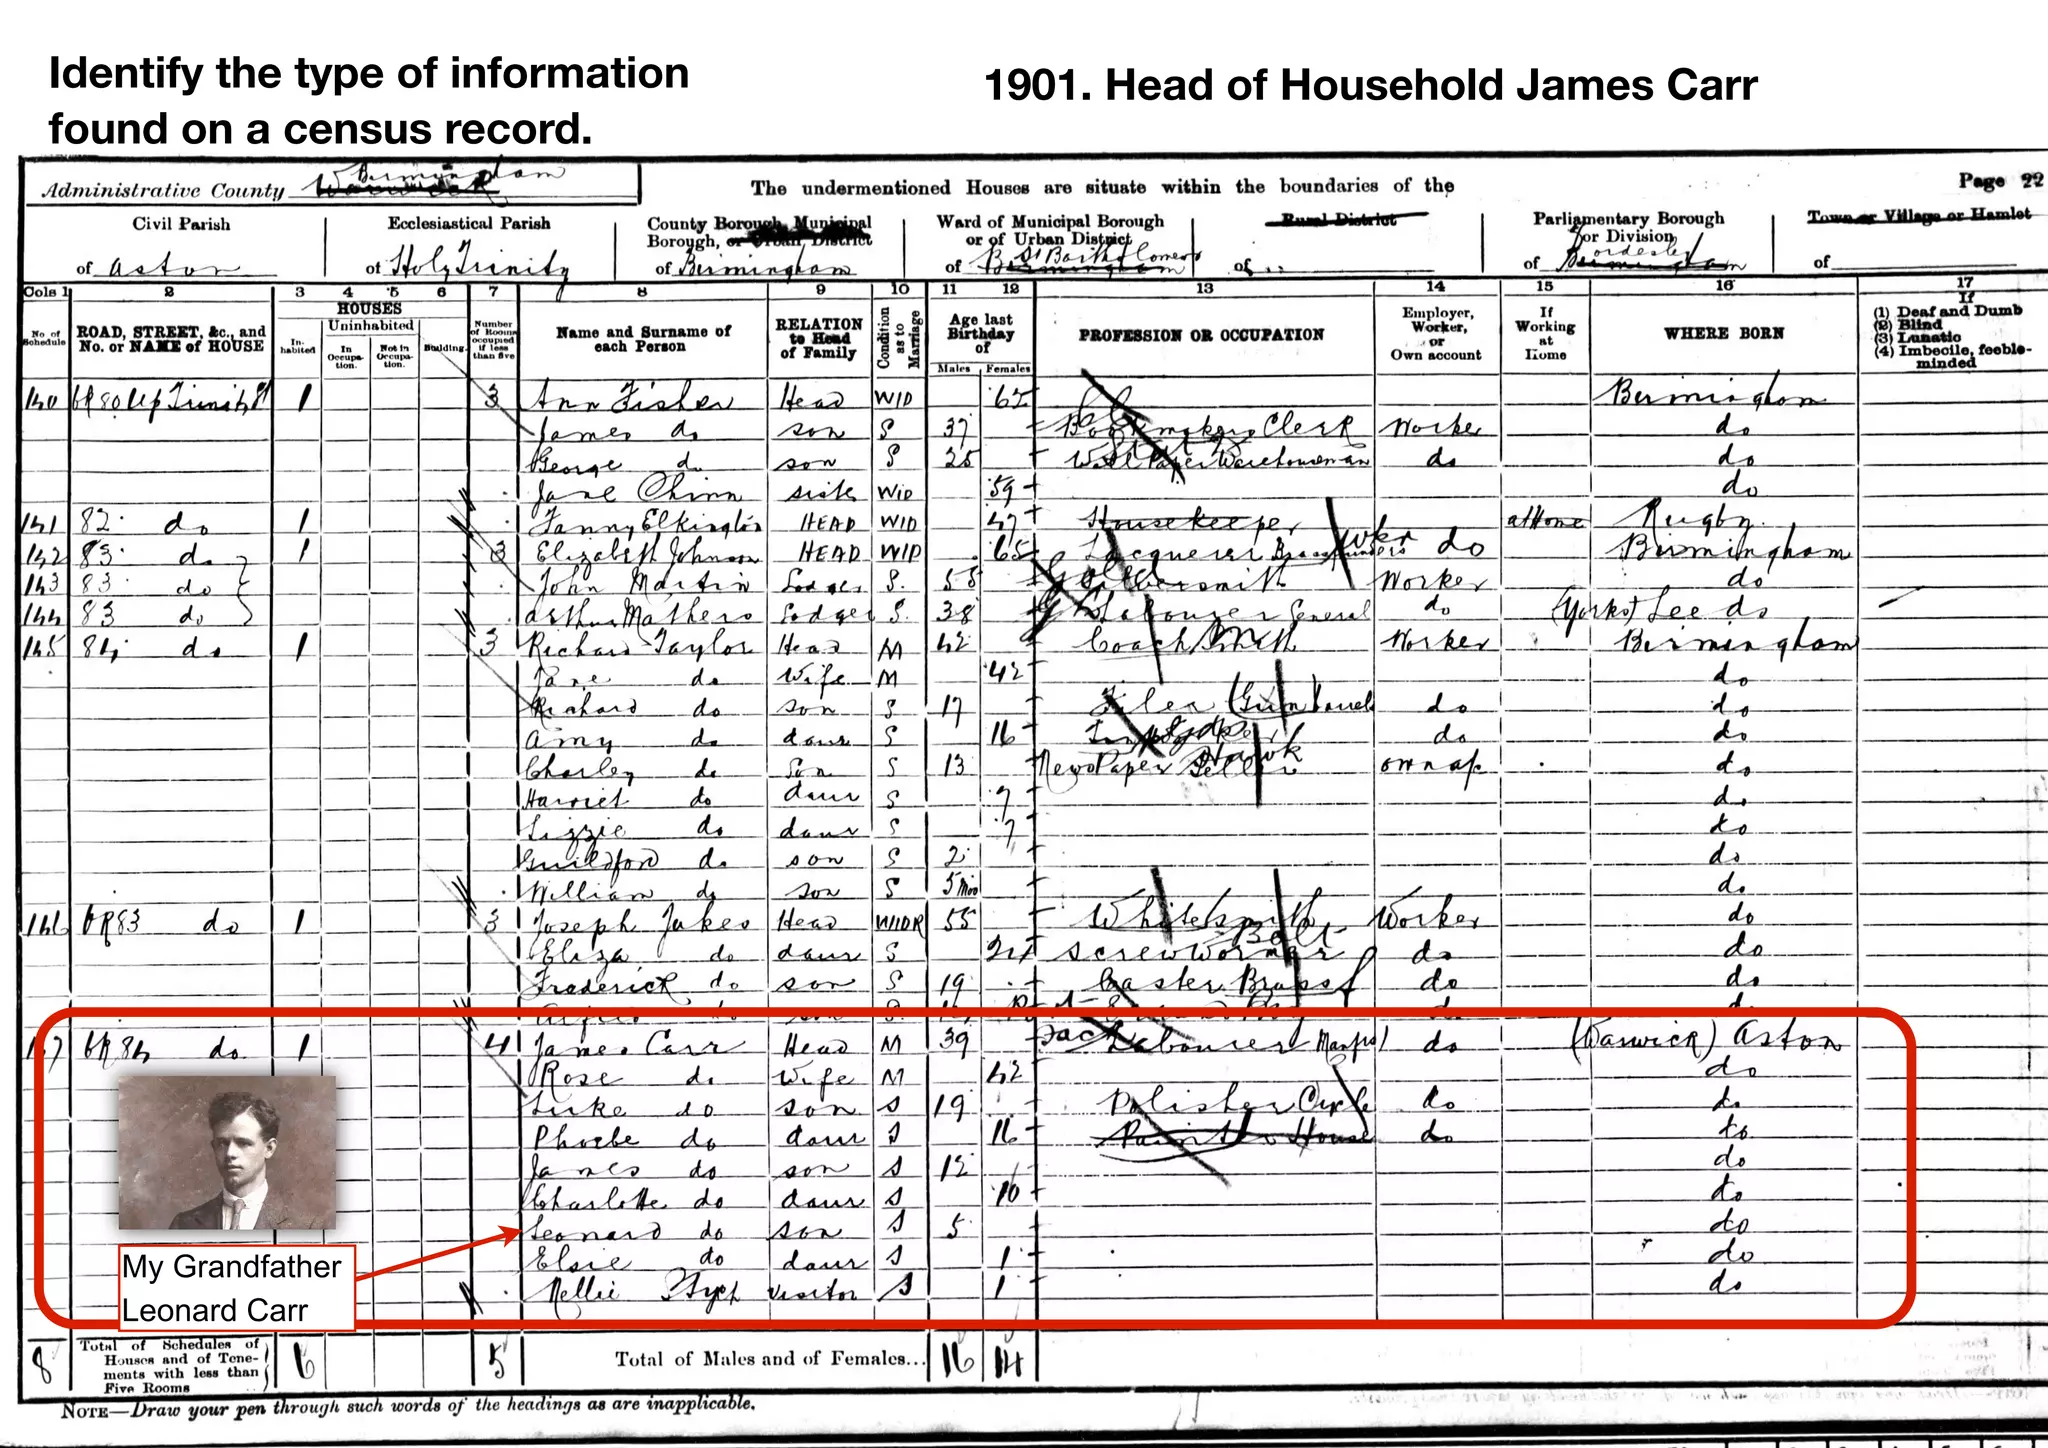 Identify the type of information
found on a census record.
1901. Head of Household James Carr
Administrative County Birmingham
The undermentioned Houses are situate within the boundaries of the
Page 22
Civil Parish
of Aston
Ecclesiastical Parish
of Holy Trinity
County Borough, Municipal
Borough, or Urban District
of Birmingham
Ward of Municipal Borough
or of Urban District
of St Bartholomews
Rural District
of
Parliamentary Borough
or Division
of Bordesley
Town or Village or Hamlet
of
Cols 1 2 3 4 5 6 7 8 9 10 11 12 13 14 15 16 17
No. of Schedule
ROAD, STREET, &c., and
No. or NAME of HOUSE
HOUSES
In-
habited
Uninhabited
In
Occupa-
tion.
Not in
Occupa-
tion.
Building.
Number
of Rooms
occupied
if less
than five
Name and Surname of
each Person
RELATION
to Head
of Family
Condition
as to
Marriage
Age last
Birthday
of
Males Females
PROFESSION OR OCCUPATION
Employer,
Worker,
or
Own account
If
Working
at
Home
WHERE BORN
If
(1) Deaf and Dumb
(2) Blind
(3) Lunatic
(4) Imbecile, feeble-
minded
140 1 3 Ann Fisher Head WID 62 Birmingham
James do son S 37 Clerk Worker do
George do son S 25 Wall Paper Warehouseman do do
Jane Chinn sister WID 59 do
141 82 do 1 Fanny Elkington HEAD WID 47 Housekeeper at Home Rugby
142 83 do 1 3 Elizabeth Johnson HEAD WID 65 Lacquerer do Birmingham
143 83 do John Martin Lodger S. 58 Worker do
144 83 do Arthur Mathers Lodger S. 38 Labourer General do (Yorks) Lee do
145 84 do 1 3 Richard Taylor Head M 42 Coach Smith Worker Birmingham
Jane do Wife M 42 do
Richard do son S 17 Filer (Gun barrel do do
Amy do daur S 16 do do
Charley do Son S 13 News Paper Seller Hawk own ac. do
Harriet do daur S 9 do
Lizzie do daur S 7 do
Guildford do son S 2 do
William do son S 5 Mos do
146 BR 83 do 1 3 Joseph Jukes Head WIDR 55 Whitesmith Worker do
Eliza do daur S 24 Screw Wormer Bolt do do
Frederick do son S 19 Caster Brass do do
Alfred do son S. do
147 BR 84 do 1 4 James Carr Head M 39 Labourer do (Warwick) Aston
Rose do Wife M 42 do
Luke do son S 19 Polisher Cycle do do
Phoebe do daur S 16 Painter House do do
James do son S 12 do
Charlotte do daur S 10 do
Leonard do son S 5 do
Elsie do daur S 1 do
Nellie visitor S 1 do
My Grandfather
Leonard Carr
8 Total of Schedules of
Houses and of Tene-
ments with less than
Five Rooms
6 5 Total of Males and of Females... 16 14
NOTE—Draw your pen through such words of the headings as are inapplicable.